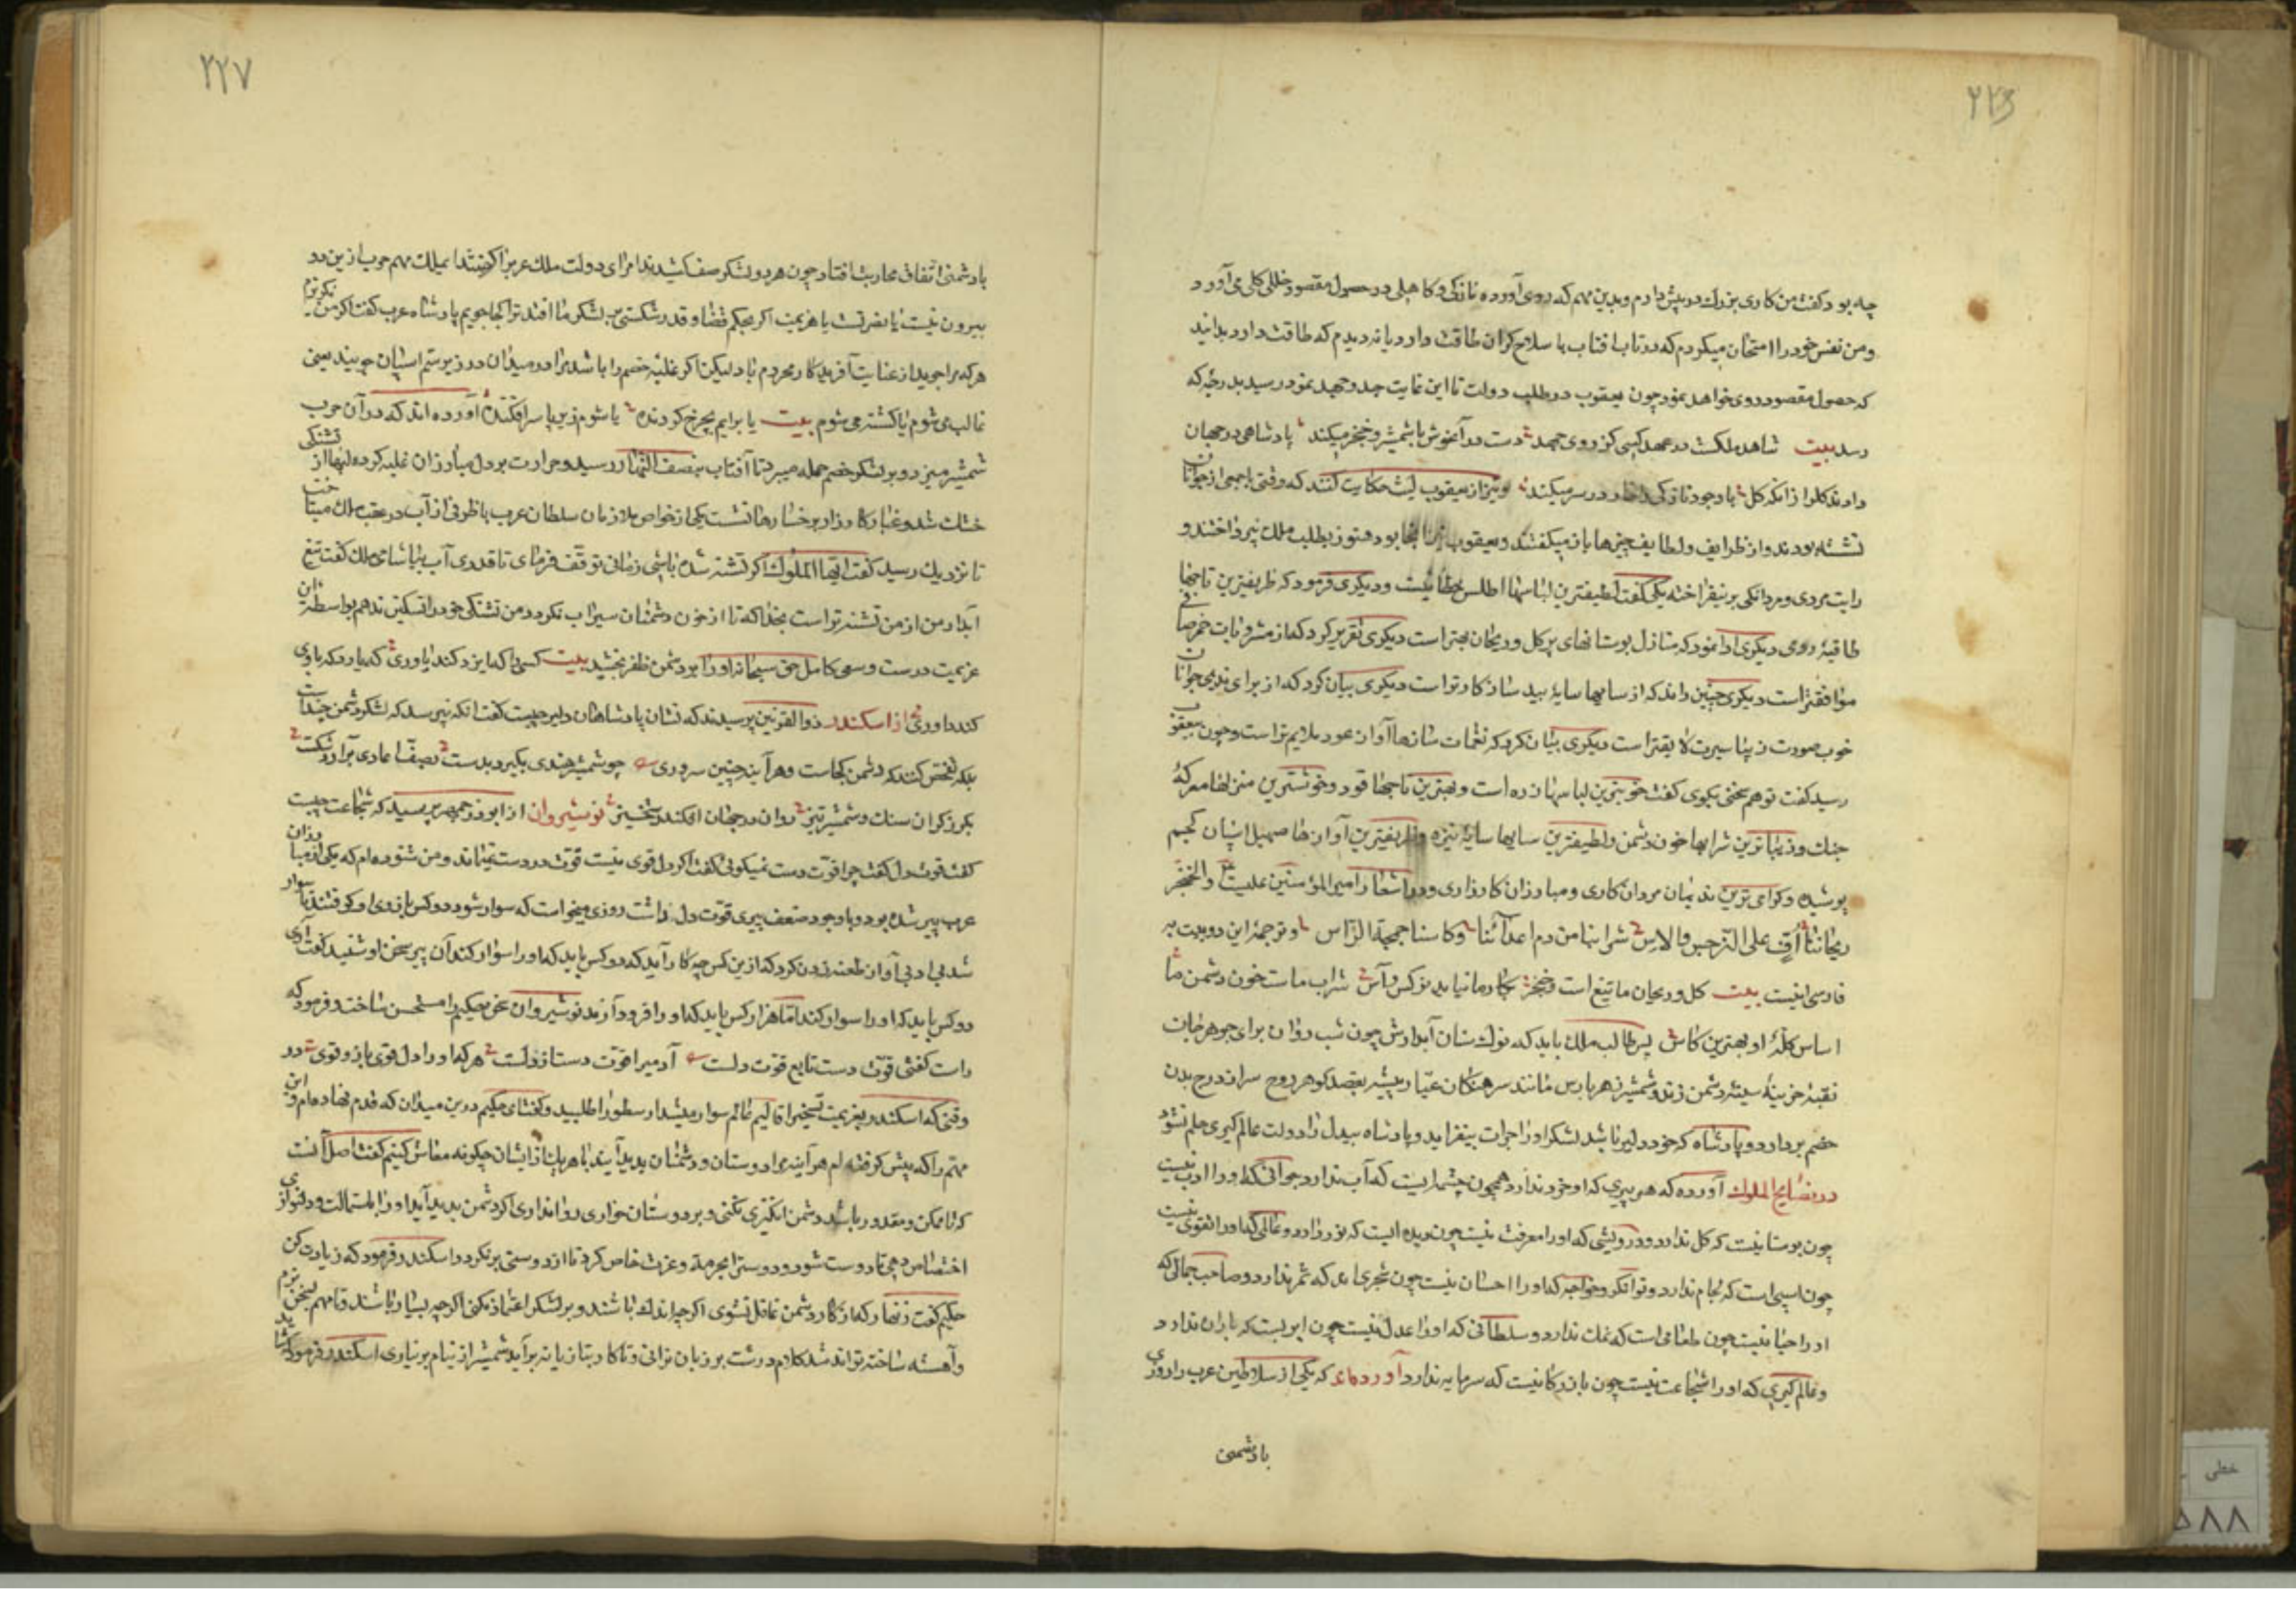 ۲۲۶
چه بود گفت من کاری بزرك در پیش دارم و بدین مهم که روی آورده نازکی و کاهلی در حصول مقصود خللی کلی می آورد
و من نفس خود را امتحان میکردم که در تاب افتاب با سلاح گران طاقت دارد یا نه دیدم که طاقت دارد بدانید
که حصول مقصود روی خواهد نمود چون یعقوب در طلب دولت تا این غایت جد و جهد نمود رسید بدرجۀ که
رسد بیت شاهد ملکست در عهد کسی کز روی جهد دست در آغوش با شمشیر و خنجر میکند پادشاهی در جهان
دادند کلرا زانکه کل با وجود نازکی در سر میکند و نیز از یعقوب لیث حکایت کنند که وقتی با جمعی از جوانان
نشسته بودند و از ظرایف و لطایف چیزها باز میکفتند و یعقوب آنجا بود هنوز بطلب ملك نپرداختند و
رایت مردی و مردانکی بر نیفراخته یکی کفت لطیفترین لباسها اطلس خطائیست و دیکری فرمود که ظریفترین تاجها
طاقیۀ رومی دیکری ادا نمود که منازل بوستانهای پر کل و ریحان بهتر است دیکری تقریر کرد که از مشروبات خمر صافی
موافقتر است دیکری چنین راند که از سایها سایۀ بید سازکارتر است دیکری بیان کرد که از برای ندیمی جوانان
خوب صورت زیبا سیرت لایقتر است دیکری بیان کرد که نغمات سازها آواز عود ملایم تر است و چون بیعقوب
رسید کفت تو هم سخنی بکوی کفت خوبترین لباسها زره است و بهترین تاجها خود و خوشترین منزلها معرکۀ
جنك و زیباترین شرابها خون دشمن و لطیفترین سایها سایۀ نیزه و ظریفترین آوازها صهیل اسپان کجیم
پوشیده و کرامی ترین ندیمان مردان کاری و مبارزان کارزاری و در اشعار امیر المؤمنین علیست و الخنجر
ریحاننا اف علی النرجس و الاس شرابنا من دم اعدائنا و کاسنا جمجمة الراس و ترجمۀ این دو بیت به
فارسی اینست بیت کل و ریحان ما تیغ است و خنجر بکار ما نیاید نرکس و آس شراب ماست خون دشمن ما
اساس کلۀ او بهترین کاس پس طالب ملك باید که نوك سنان آبدارش چون شب روان برای جوهر جان
نقب خزینۀ سینۀ دشمن زند و شمشیر زهر بارس مانند سرهنکان عیار پیشه بقصد کوهر روح سر از درج بدن
خصم بردارد و پادشاه که خود دلیر نباشد لشکر او را جرات بیفزاید و پادشاه بیدل را دولت عالم کیری مسلم نشود
در نصایح الملوك آورده که هر پیری که او خرد ندارد همچون چشمه ایست که آب ندارد جوانی که او را ادب نیست
چون بوستانیست که کل ندارد و درویشی که او را معرفت نیست چون دیده ایست که نور ندارد و عالمی که او را تقوی نیست
چون اسپی است که لجام ندارد و توانکر و خواجه که او را احسان نیست چون شجری ماند که ثمر ندارد و صاحب جمالی که
او را حیا نیست چون طعامی است که نمك ندارد و سلطانی که او را عدل نیست چون ابریست که باران ندارد
و عالم کیری که او را شجاعت نیست چون بازرکانیست که سرمایه ندارد آورده اند که یکی از سلاطین عرب را روزی
با دشمنی
۲۲۷
با دشمنی اتفاق محاربت افتاد چون هر دو لشکر صف کشیدند امرای دولت ملك عرب را کفتند ایملك مهم حرب از این دو
بیرون نیست یا نصرتست یا هزیمت اکر بحکم قضا و قدر شکستی بر لشکر ما افتد ترا کجا جوییم پادشاه عرب کفت اکر من بکریزم
هر که مرا جوید از عنایت آفریدکار محروم باد لیکن اکر غلبه خصم را باشد مرا در میدان در زیر سم اسپان جویید یعنی
غالب می شوم یا کشته می شوم بیت یا برایم بچرخ کردنده یا شوم زیر پا سر افکنده آورده اند که در آن حرب
شمشیر میزد و بر لشکر خصم حمله میبرد تا آفتاب بنصف النهار رسید و حرارت بر دل مبارزان غلبه کرده لبها از تشنکی
خشك شد و غبار کارزار بر رخسارها نشست یکی از خواص ملازمان سلطان عرب با ظرفی از آب در عقب ملك میتاخت
تا نزدیك رسید کفت ایها الملوك اکر تشنه شده باشی زمانی توقف فرمای تا قدری آب بیاشامی ملك کفت تیغ
آبدار من از من تشنه تر است بخدا که تا از خون دشمنان سیراب نکردد من تشنکی خود را تسکین ندهم بواسطۀ آن
عزیمت درست و سعی کامل حق سبحانه او را بر دشمن ظفر بخشید بیت کسی را که ایزد کند یاوری که یارد که با وی
کند داوری از اسکندر ذو القرنین پرسیدند که نشان پادشاهان دلیر چیست کفت انکه نپرسد که لشکر دشمن چندست
بلکه تفحص کند که دشمن کجاست و هر آینه چنین سروری چو شمشیر هندی بکیرد بدست بصف اعادی برآرد شکست
بکرز کران سنك و شمشیر تیز روان در جهان افکند رستخیز نوشیروان از ابوزرجمهر پرسید که شجاعت چیست
کفت قوت دل کفت چرا قوت دست نمیکوئی کفت اکر دل قوی نیست قوت در دست نمیماند و من شنوده ام که یکی از مبارزان
عرب پیر شده بود و با وجود ضعف پیری قوت دل داشت روزی میخواست که سوار شود دو کس بازوی او کرفتند تا سوار
شد بی ادبی آواز طعنه زدن کرد که ازین کس چه کار آید که دو کس باید که او را سوار کند آن پیر سخن او شنید کفت آری
دو کس باید که او را سوار کند اما هزار کس باید که او را فرود آرند نوشیروان سخن حکیم را مستحسن ساخت و فرمود که
راست کفتی قوت دست تابع قوت دلست آدمیرا قوت دست از دلست هر که او را دل قوی بازو قوی در
وقتی که اسکندر بعزیمت تسخیر اقالیم عالم سوار میشد ارسطو را طلبید و کفت ای حکیم درین میدان که قدم نهاده ام و این
مهم را که پیش کرفته ام هر آینه مرا دوستان و دشمنان پدید آیند با هر یك از ایشان چکونه معاش کنیم کفت اصل آنست
که تا ممکن و مقدور باشد دشمن انکیزی نکنی و بر دوستان خواری روا نداری اکر دشمن پدید آید او را باستمالت و دلنوازی
اختصاص دهی تا دوست شود و دوست را بحرمت و عزت خاص کرد تا از دوستی بر نکردد اسکندر فرمود که زیادت کن
حکیم کفت زنهار که از کار دشمن غافل نشوی اکر چه اندك باشند و بر لشکر اعتماد نکنی اکر چه بسیار باشند و تا مهم بسخن نرم
و آهسته ساخته تواند شد کلام درشت بر زبان نرانی و تا کار بتازیانه برآید شمشیر از نیام بر نیاری اسکندر فرمود که
خطی
۵۸۸